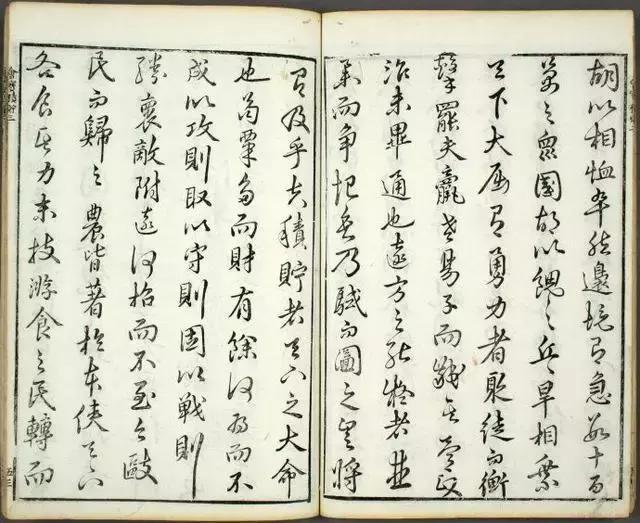 胡以相恤卒然邊境有急數十百
萬之眾國胡以餽之兵旱相乘
天下大屈有勇力者聚徒而衡
擊罷夫羸老易子而齩其骨政
治未畢通也遠方之能擬者並
舉而爭起矣乃駭而圖之豈將
有及乎夫積貯者天下之大命
也苟粟多而財有餘何為而不
成以攻則取以守則固以戰則
勝懷敵附遠何招而不至今毆
民而歸之農皆著於本使天下
各食其力末技游食之民轉而